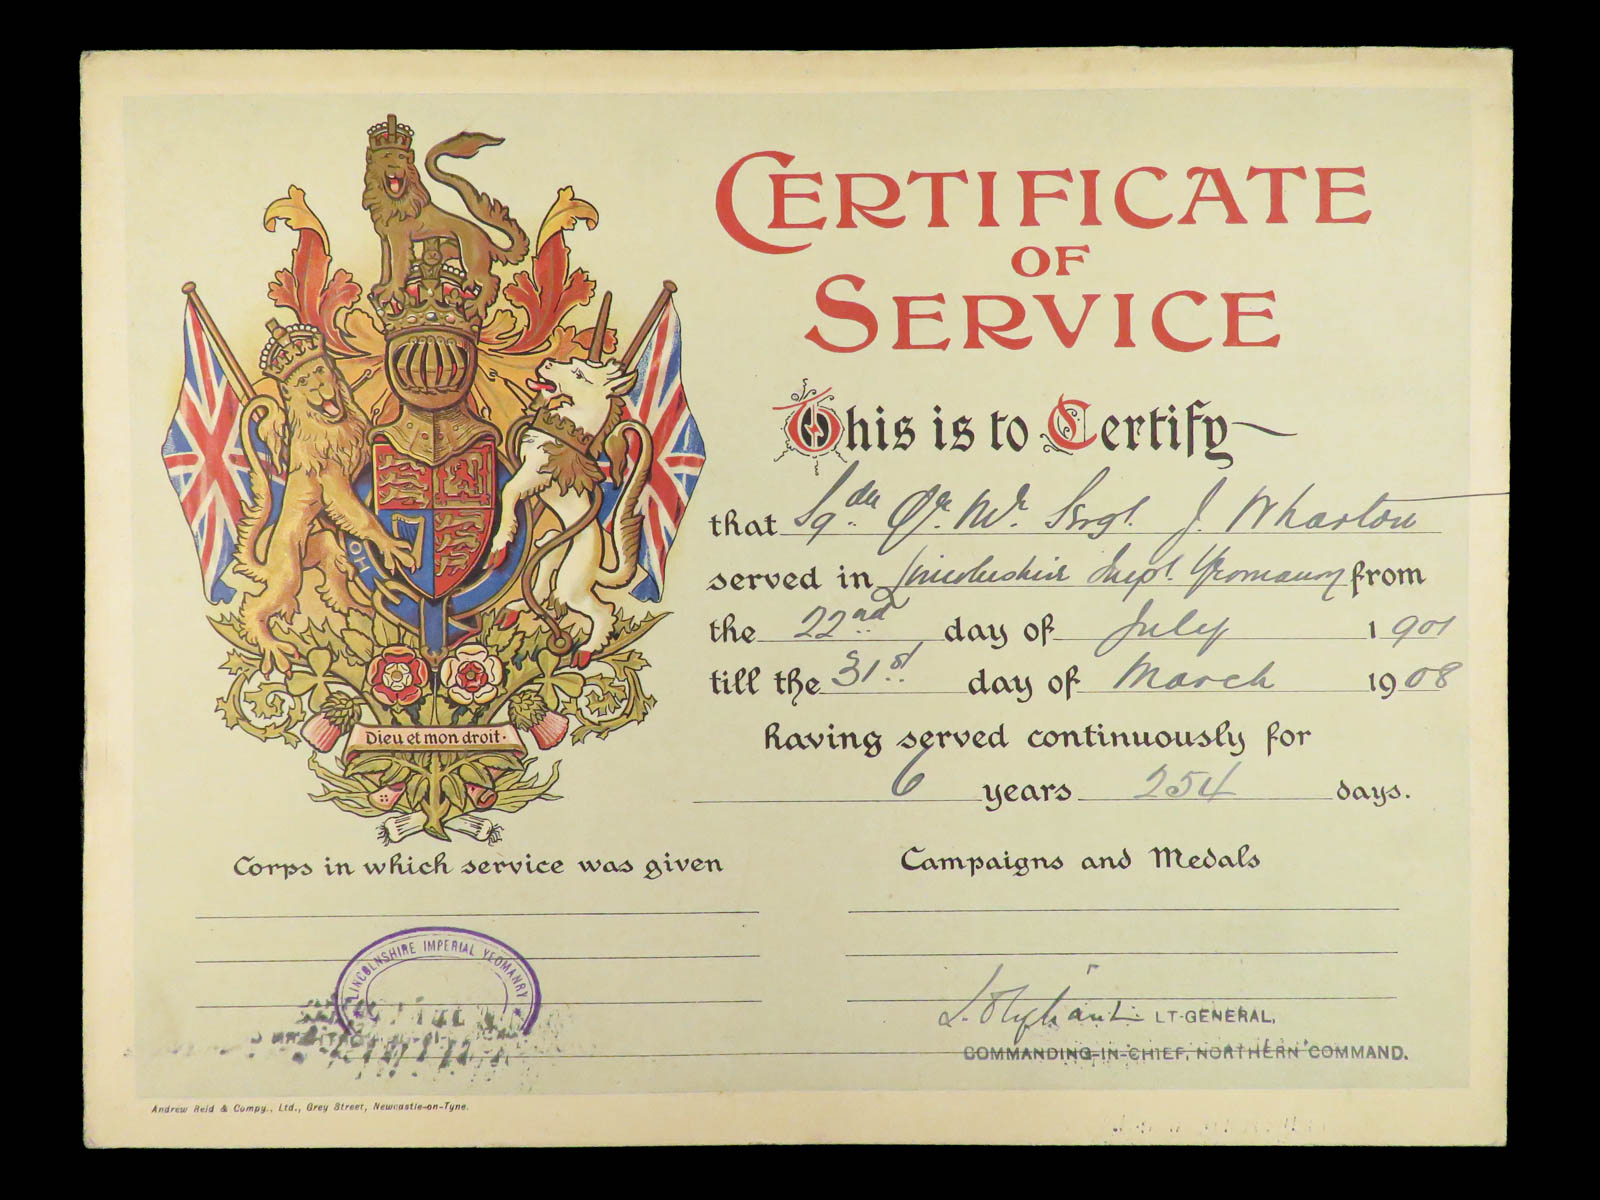 CERTIFICATE
OF
SERVICE
This is to Certify
that Sqdn. Qr. Mr. Sergt. J. Wharton
served in Lincolnshire Impl. Yeomanry from
the 22nd day of July 1901
till the 31st day of March 1908
having served continuously for
6 years 254 days.
Dieu et mon droit.
HO
Corps in which service was given
Campaigns and Medals
LINCOLNSHIRE IMPERIAL YEOMANRY
L. Oliphant LT-GENERAL,
COMMANDING-IN-CHIEF, NORTHERN COMMAND.
Andrew Reid & Compy., Ltd., Grey Street, Newcastle-on-Tyne.